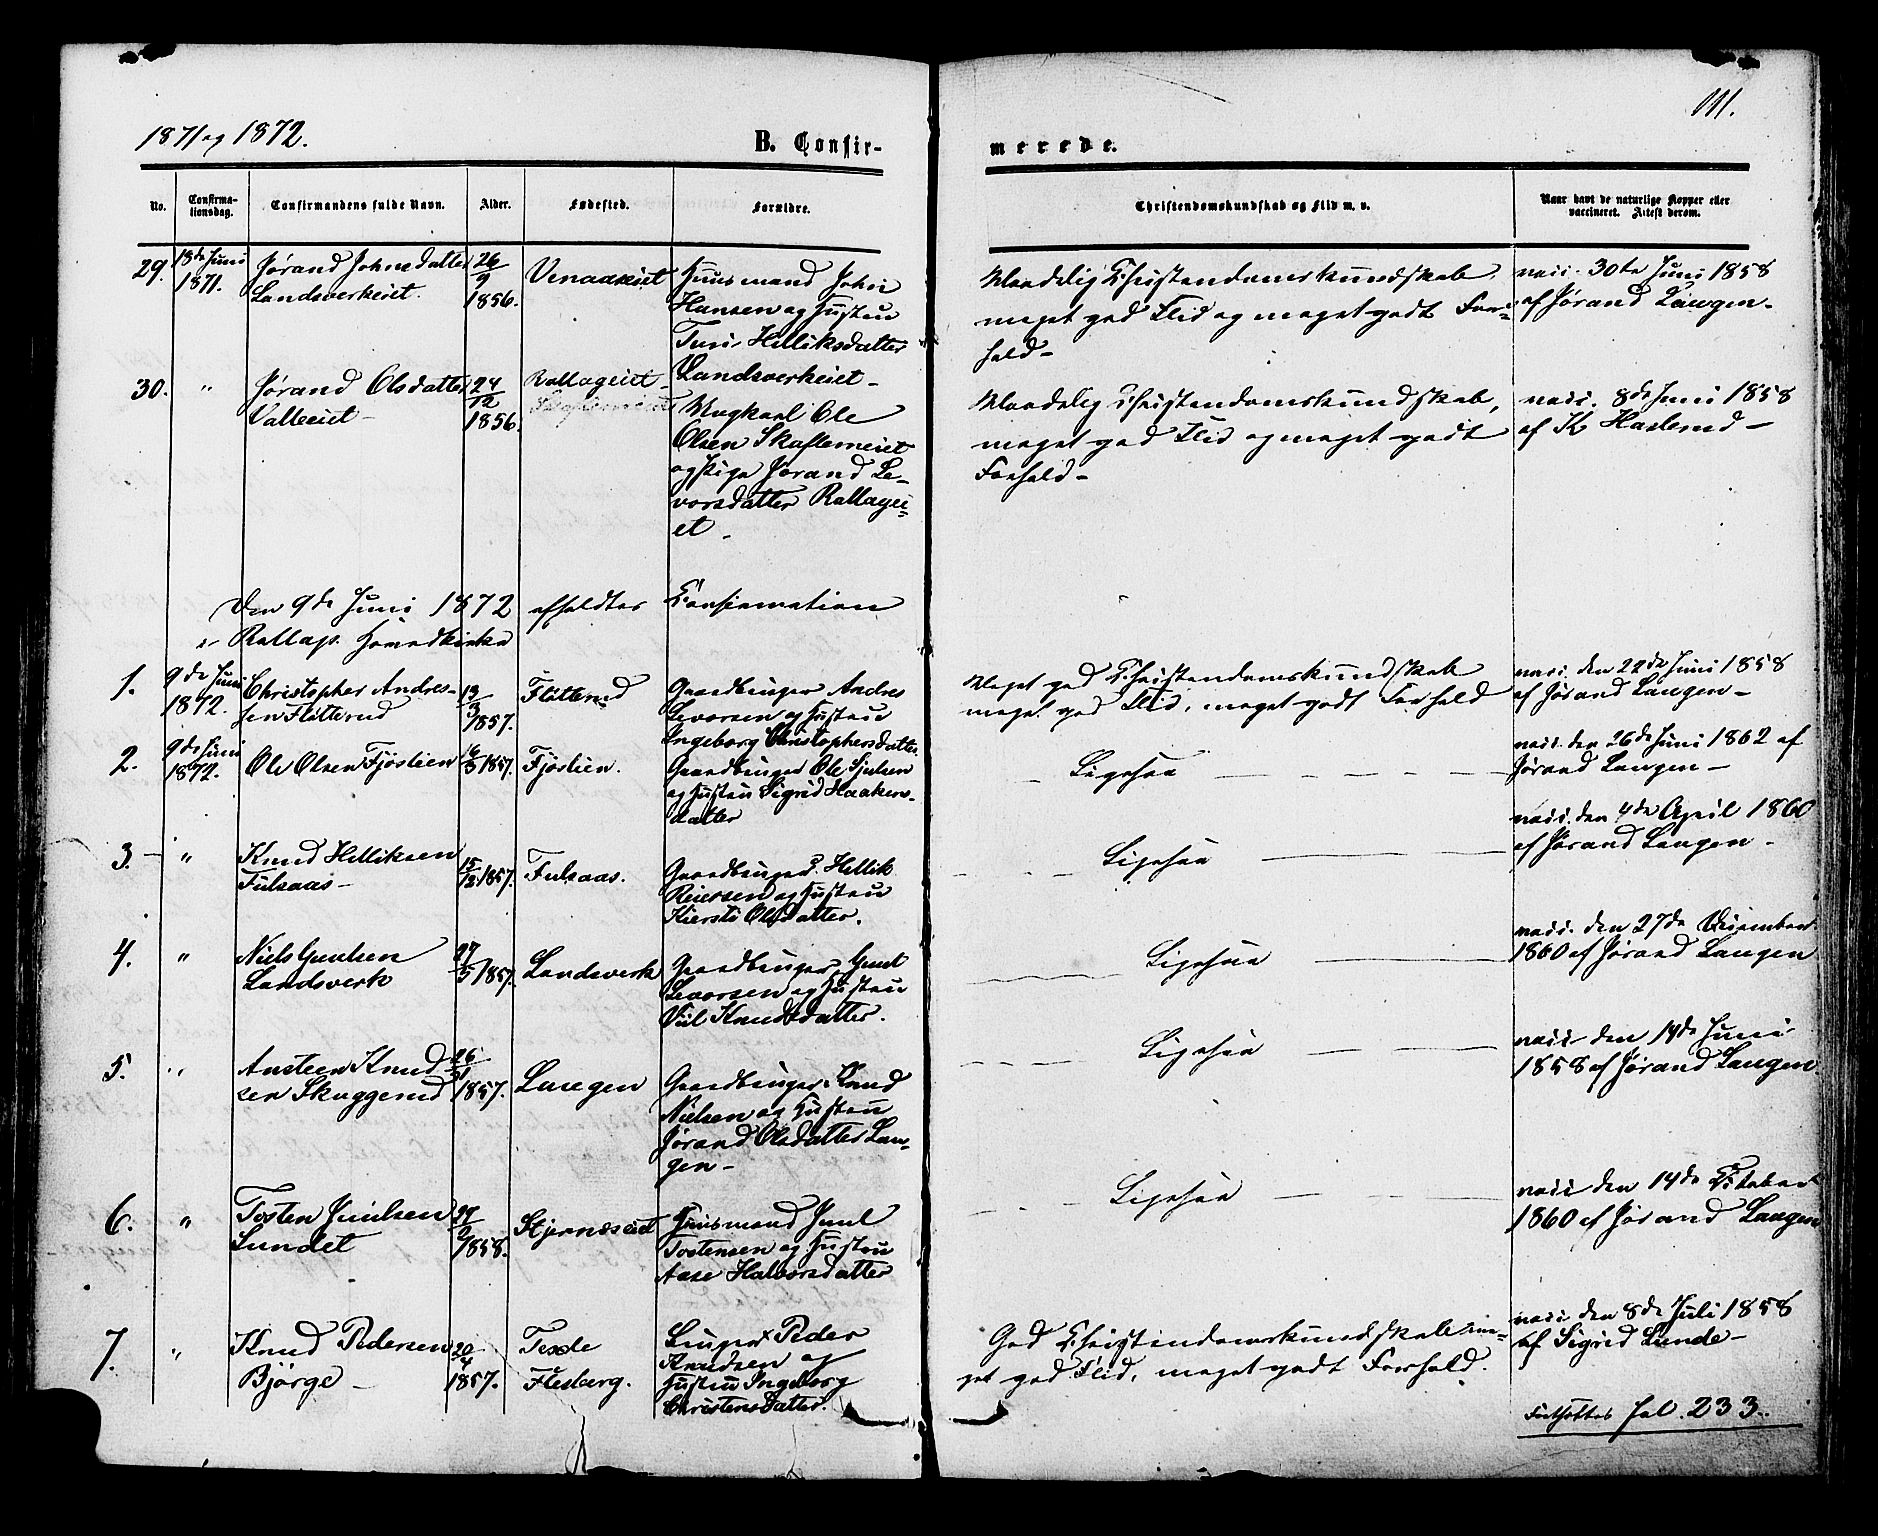 1871 og 1872.
B. Confir-
merede.
111.
No.
Confirma-
tionsdag.
Confirmandens fulde Navn.
Alder.
Fødested.
Forældre.
Christendomskundskab og Flid m. v.
Naar havt de naturlige Kopper eller
vaccineret. Attest derom.
29.
18de Juni
1871.
Jørand Johnsdatter
Landsverkeiet.
26/9
1856.
Venaaseiet
Huusmand John
Hansen og Hustru
Turi Helliksdatter
Landsverkeiet-
Maadelig Christendomskundskab,
meget god Flid og meget godt For-
hold-
vacc. 30te Juni 1858
af Jørand Laugen-
30.
"
Jørand Olsdatter
Valleeiet-
24/12
1856.
Rollageiet-
Ungkarl Ole
Olsen Skaflemeiet
og Pige Jørand Le-
vorsdatter Rollagei-
et-
Maadelig Christendomskundskab,
meget god Flid og meget godt
Forhold-
vacc. 8de Juni 1858
af K Haslerud-
Den 9de Juni 1872 afholdtes Confirmation
i Rollags Hovedkirke
1.
9de Juni
1872.
Christopher Andres-
sen Fløtterud
13/3
1857.
Fløtterud
Gaardbruger Andres
Levorsen og Hustru
Ingeborg Christophersdatter
Meget god Christendomskundskab
meget god Flid, meget godt Forhold
vacc. den 22de Juni 1858
af Jørand Laugen-
2.
9de Juni
1872.
Ole Olsen Fjøslien
16/3 1857.
Fjøslien.
Gaardbruger Ole Gjulsen
og Hustru Sigrid Haakens-
datter
Ligesaa
vacc. den 26de Juni 1862 af
Jørand Laugen-
3.
"
Knud Helliksen
Fulsaas-
15/12 1857.
Fulsaas.
Gaardbruger Hellik
Reiersen og Hustru
Kiersti Olsdatter.
Ligesaa
vacc. den 4de April 1860
af Jørand Laugen-
4.
"
Niels Guulsen
Landsverk
27/5 1857.
Landsverk
Gaardbruger Guul
Levorsen og Hustru
Viil Knudsdatter.
Ligesaa
vacc. den 27de December
1860 af Jørand Laugen
5.
"
Ansteen Knud
sen Skuggerud
1857.
Laugen
Gaardbruger Knud
Nielsen og Hustru
Jørand Olsdatter Lau-
gen-
Ligesaa
vacc den 14de Juni
1858 af Jørand Laugen
6.
"
Tosten Juulsen
Lundet
1858.
Stjerneseiet
Huusmand Juul
Tostensen og Hustru
Aase Halvorsdatter
Ligesaa
vacc den 14de October
1860 af Jørand Laugen
7.
"
Knud Pedersen
Bjørge-
20/4
1857.
Flesberg.
Bruger Peder
Knudsen og
Hustru Ingeborg
Christensdatter.
God Christendomskundskab, me-
get god Flid, meget godt Forhold.
vacc den 8de Juli 1858
af Sigrid Lunde-
Fortsættes fol. 233.